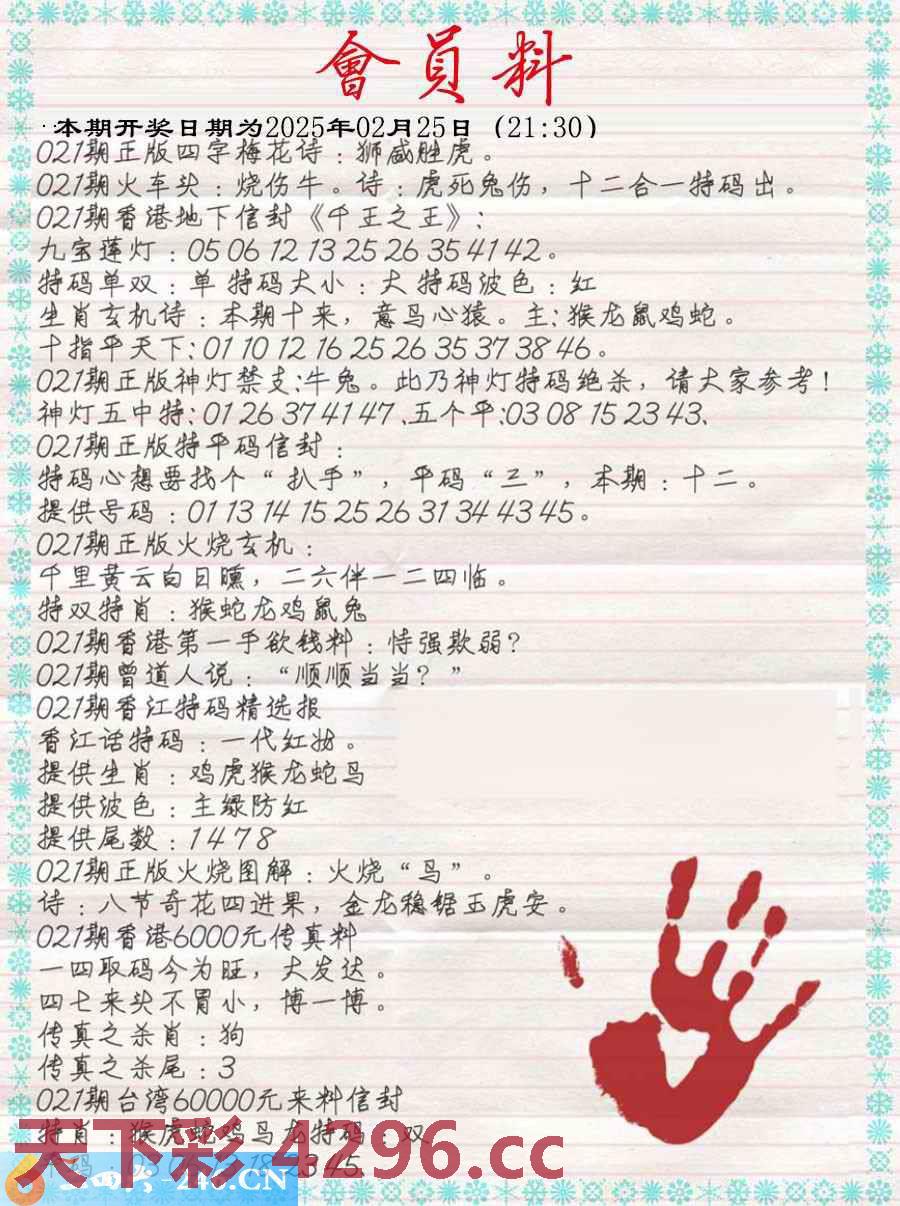 會員料
本期开奖日期为2025年02月25日（21:30）
021期正版四字梅花诗：狮威胜虎。
021期火车头：烧伤牛。诗：虎死兔伤，十二合一特码出。
021期香港地下信封《千王之王》：
九宝莲灯：05 06 12 13 25 26 35 41 42。
特码单双：单 特码大小：大 特码波色：红
生肖玄机诗：本期十来，意鸟心猿。主：猴龙鼠鸡蛇。
十指平天下：01 10 12 16 25 26 35 37 38 46。
021期正版神灯禁支：牛兔。此乃神灯特码绝杀，请大家参考！
神灯五中特：01 26 37 41 47、五个平：03 08 15 23 43、
021期正版特平码信封：
特码心想要找个“扒手”，平码“三”，本期：十二。
提供号码：01 13 14 15 25 26 31 34 43 45。
021期正版火烧玄机：
千里黄云白日曛，二六伴一二四临。
特双特肖：猴蛇龙鸡鼠兔
021期香港第一手欲钱料：恃强欺弱？
021期曾道人说：“顺顺当当？”
021期香江特码精选报
香江话特码：一代红妆。
提供生肖：鸡虎猴龙蛇马
提供波色：主绿防红
提供尾数：1 4 7 8
021期正版火烧图解：火烧“鸟”。
诗：八节奇花四进果，金龙稳锯玉虎安。
021期香港6000元传真料
一四取码今为旺，大发达。
四七来头不冒小，博一博。
传真之杀肖：狗
传真之杀尾：3
021期台湾60000元来料信封
特肖：猴虎蛇鸡马龙特码：双
天下彩 4296.cc
246.CN